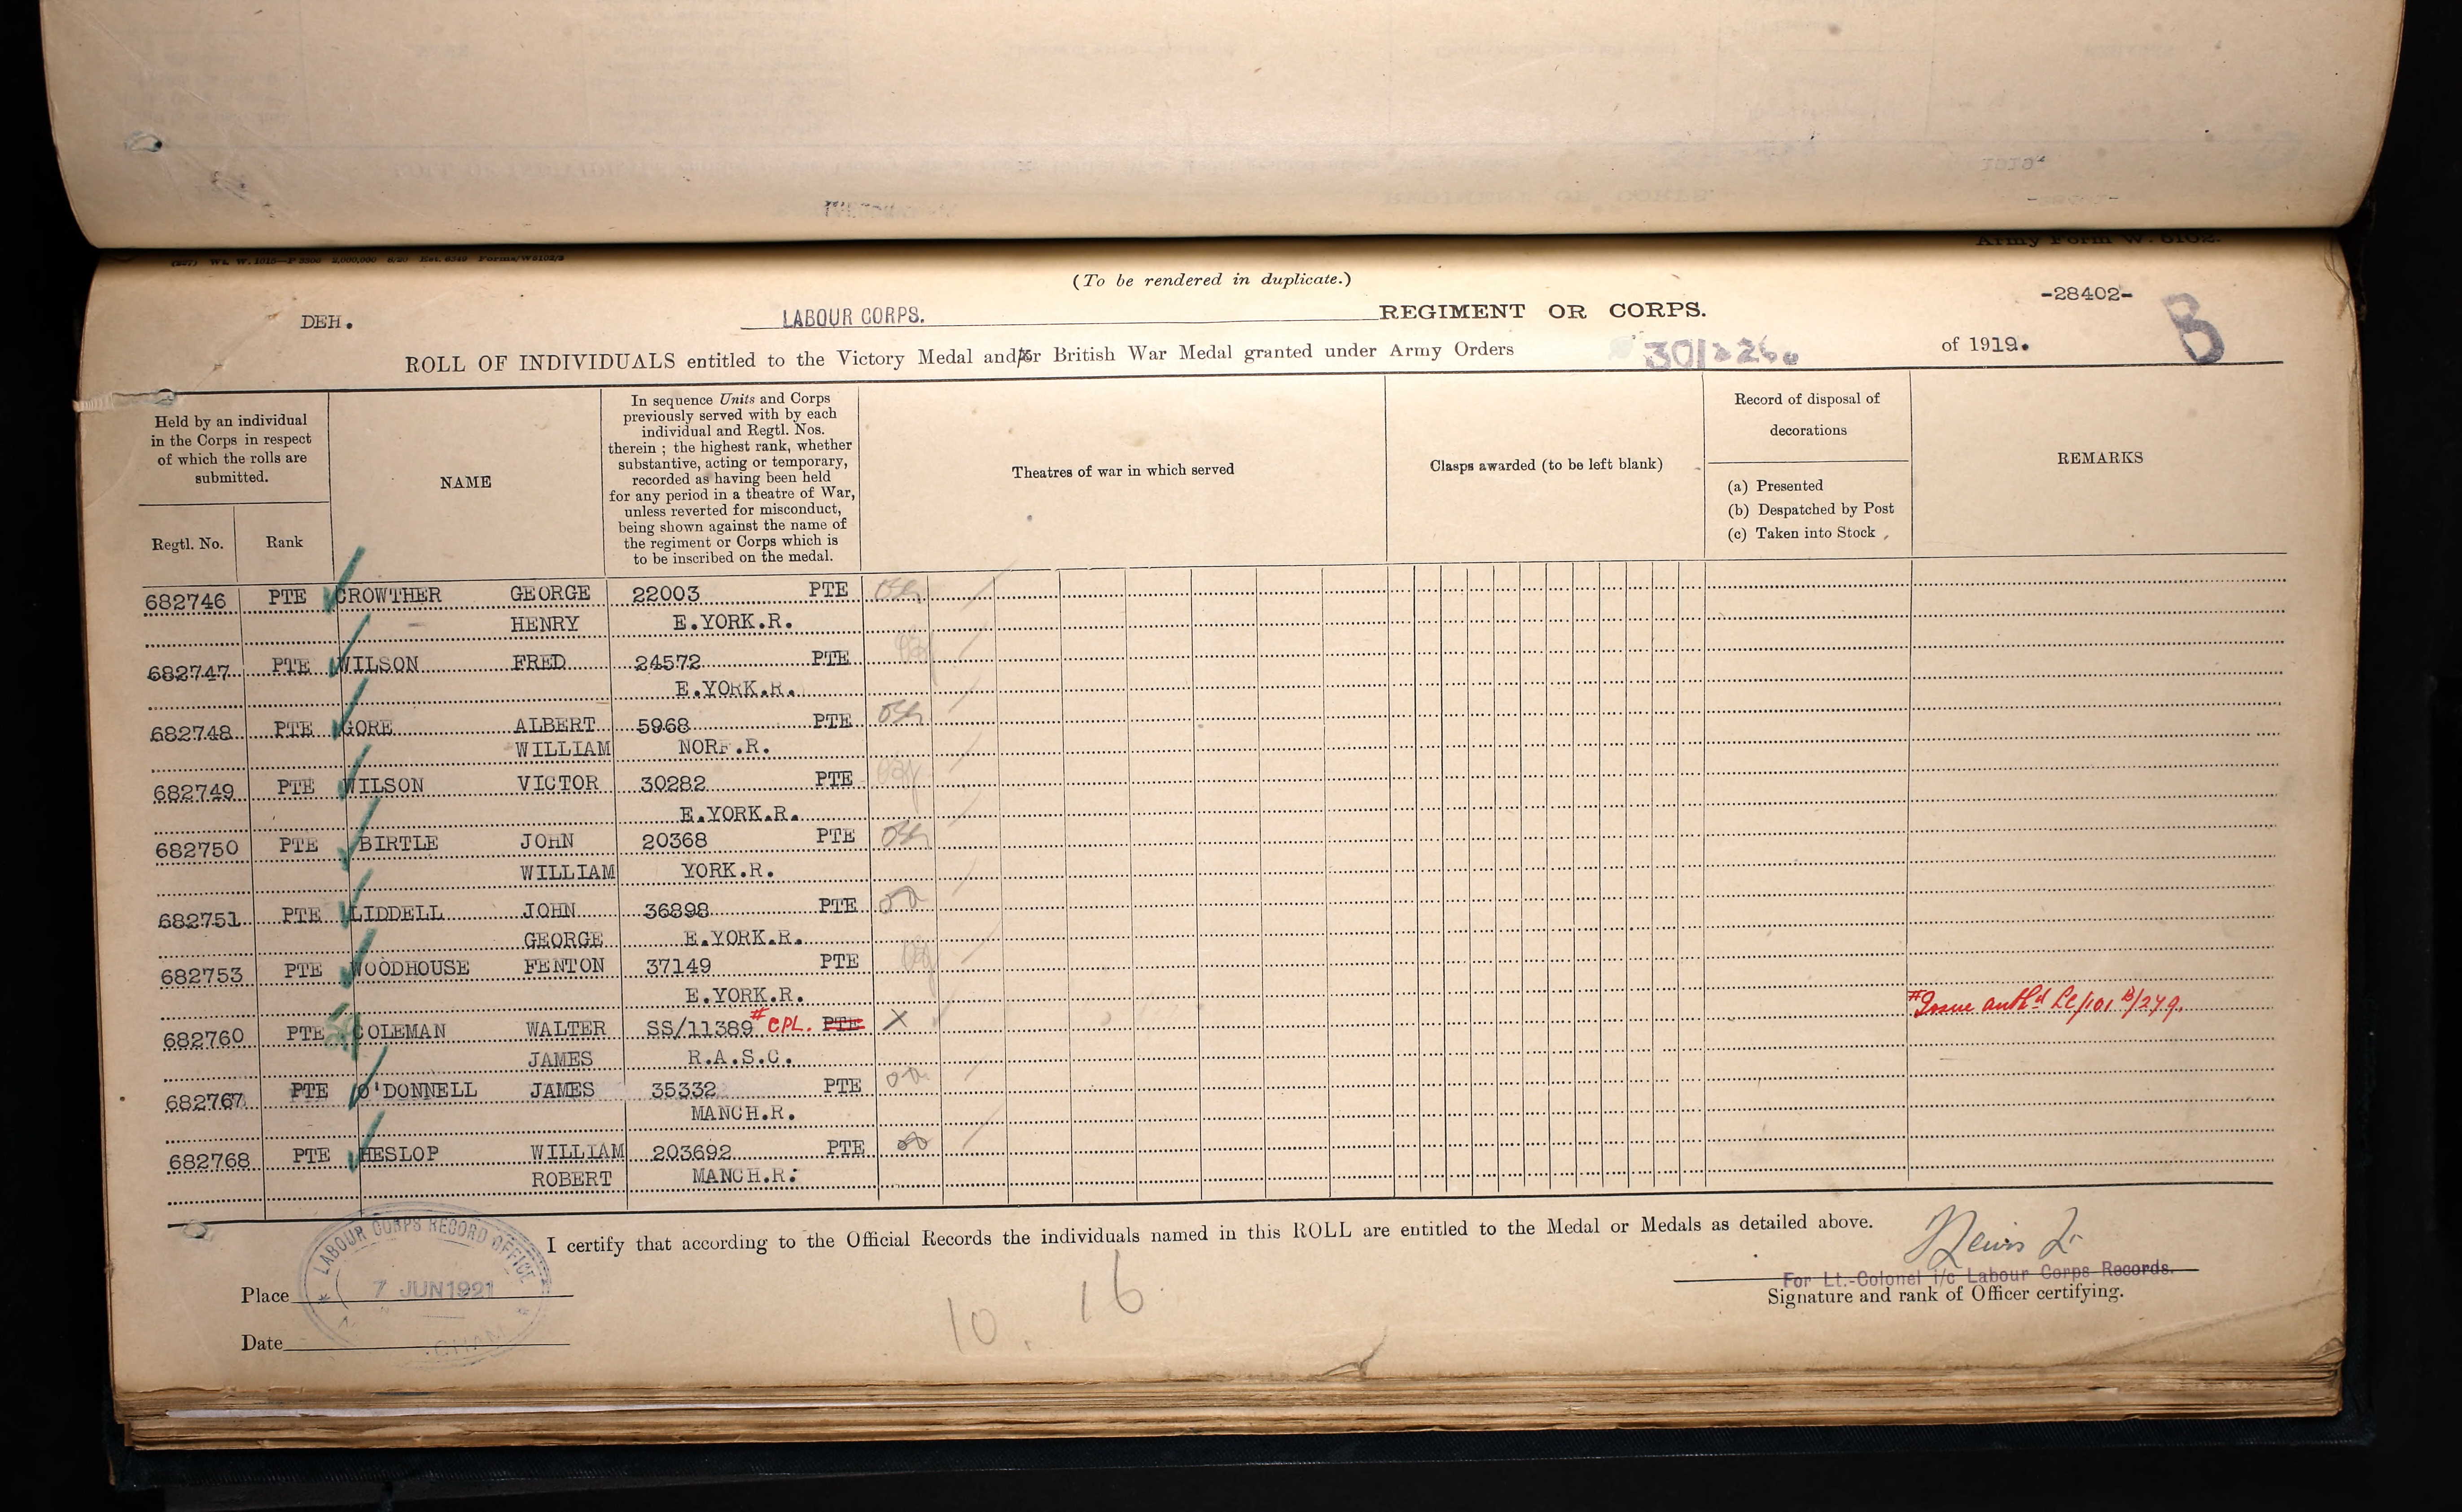 Army Form W. 5102.
(To be rendered in duplicate.)
-28402-
DEH.
LABOUR CORPS. REGIMENT OR CORPS.
B
ROLL OF INDIVIDUALS entitled to the Victory Medal and/or British War Medal granted under Army Orders 301 of 1919.
Held by an individual in the Corps in respect of which the rolls are submitted.
Regtl. No.
Rank
NAME
In sequence Units and Corps
previously served with by each
individual and Regtl. Nos.
therein ; the highest rank, whether
substantive, acting or temporary,
recorded as having been held
for any period in a theatre of War,
unless reverted for misconduct,
being shown against the name of
the regiment or Corps which is
to be inscribed on the medal.
Theatres of war in which served
Clasps awarded (to be left blank)
Record of disposal of
decorations
(a) Presented
(b) Despatched by Post
(c) Taken into Stock
REMARKS
682746 PTE CROWTHER GEORGE 22003 PTE
HENRY E.YORK.R.
682747 PTE WILSON FRED 24572 PTE
E.YORK.R.
682748 PTE GORE ALBERT 5968 PTE
WILLIAM NORF.R.
682749 PTE WILSON VICTOR 30282 PTE
E.YORK.R.
682750 PTE BIRTLE JOHN 20368 PTE
WILLIAM YORK.R.
682751 PTE LIDDELL JOHN 36898 PTE
GEORGE E.YORK.R.
682753 PTE WOODHOUSE FENTON 37149 PTE
E.YORK.R.
682760 PTE COLEMAN WALTER SS/11389 # CPL. PTE X # Issue auth
JAMES R.A.S.C.
682767 PTE O'DONNELL JAMES 35332 PTE
MANCH.R.
682768 PTE HESLOP WILLIAM 203692 PTE
ROBERT MANCH.R.
I certify that according to the Official Records the individuals named in this ROLL are entitled to the Medal or Medals as detailed above.
LABOUR CORPS RECORD OFFICE
7 JUN 1921
For Lt.-Colonel i/c Labour Corps Records.
Signature and rank of Officer certifying.
Place
Date
10. 16